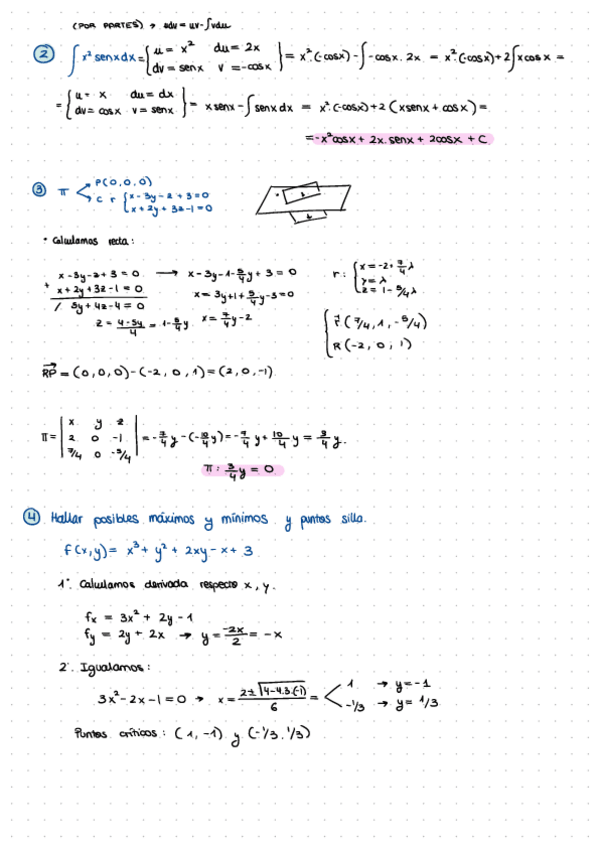 (POR PARTES) → udv = uv - ∫vdu
2 ∫ x² senx dx = { u = x² du = 2x dv = senx v = -cosx } = x²·(-cosx) - ∫ -cosx · 2x = x²·(-cosx) + 2∫ x cosx =
= { u = x du = dx dv = cosx v = senx } = x senx - ∫ senx dx = x²(-cosx) + 2 (x senx + cosx) =
= -x² cosx + 2x. senx + 2cosx + C
3 π < P(0,0,0) C r { x - 3y - z + 3 = 0 x + 2y + 3z - 1 = 0
• Calculamos recta:
x - 3y - z + 3 = 0 → x - 3y - 1 - 5/4 y + 3 = 0 r: { x = -2 + 7/4 λ
+ x + 2y + 3z - 1 = 0 x = 3y + 1 + 5/4 y - 3 = 0 y = λ
/ 5y + 4z - 4 = 0 z = 1 - 5/4 λ
z = 4 - 5y / 4 = 1 - 5/4 y x = 7/4 y - 2 { r⃗ (7/4, 1, -5/4)
R (-2, 0, 1)
RP⃗ = (0,0,0) - (-2, 0, 1) = (2, 0, -1)
π = | x y z | 2 0 -1 | 7/4 0 -5/4 | = -7/4 y - (-10/4 y) = -7/4 y + 10/4 y = 3/4 y.
π: 3/4 y = 0
4 Hallar posibles máximos y mínimos y puntos silla.
f(x,y) = x³ + y² + 2xy - x + 3
1º. Calculamos derivada respecto x, y.
fx = 3x² + 2y - 1
fy = 2y + 2x → y = -2x / 2 = -x
2º. Igualamos:
3x² - 2x - 1 = 0 → x = 2 ± √4 - 4·3·(-1) / 6 = < 1 → y = -1
-1/3 → y = 1/3
Puntos críticos: (1, -1) y (-1/3, 1/3)